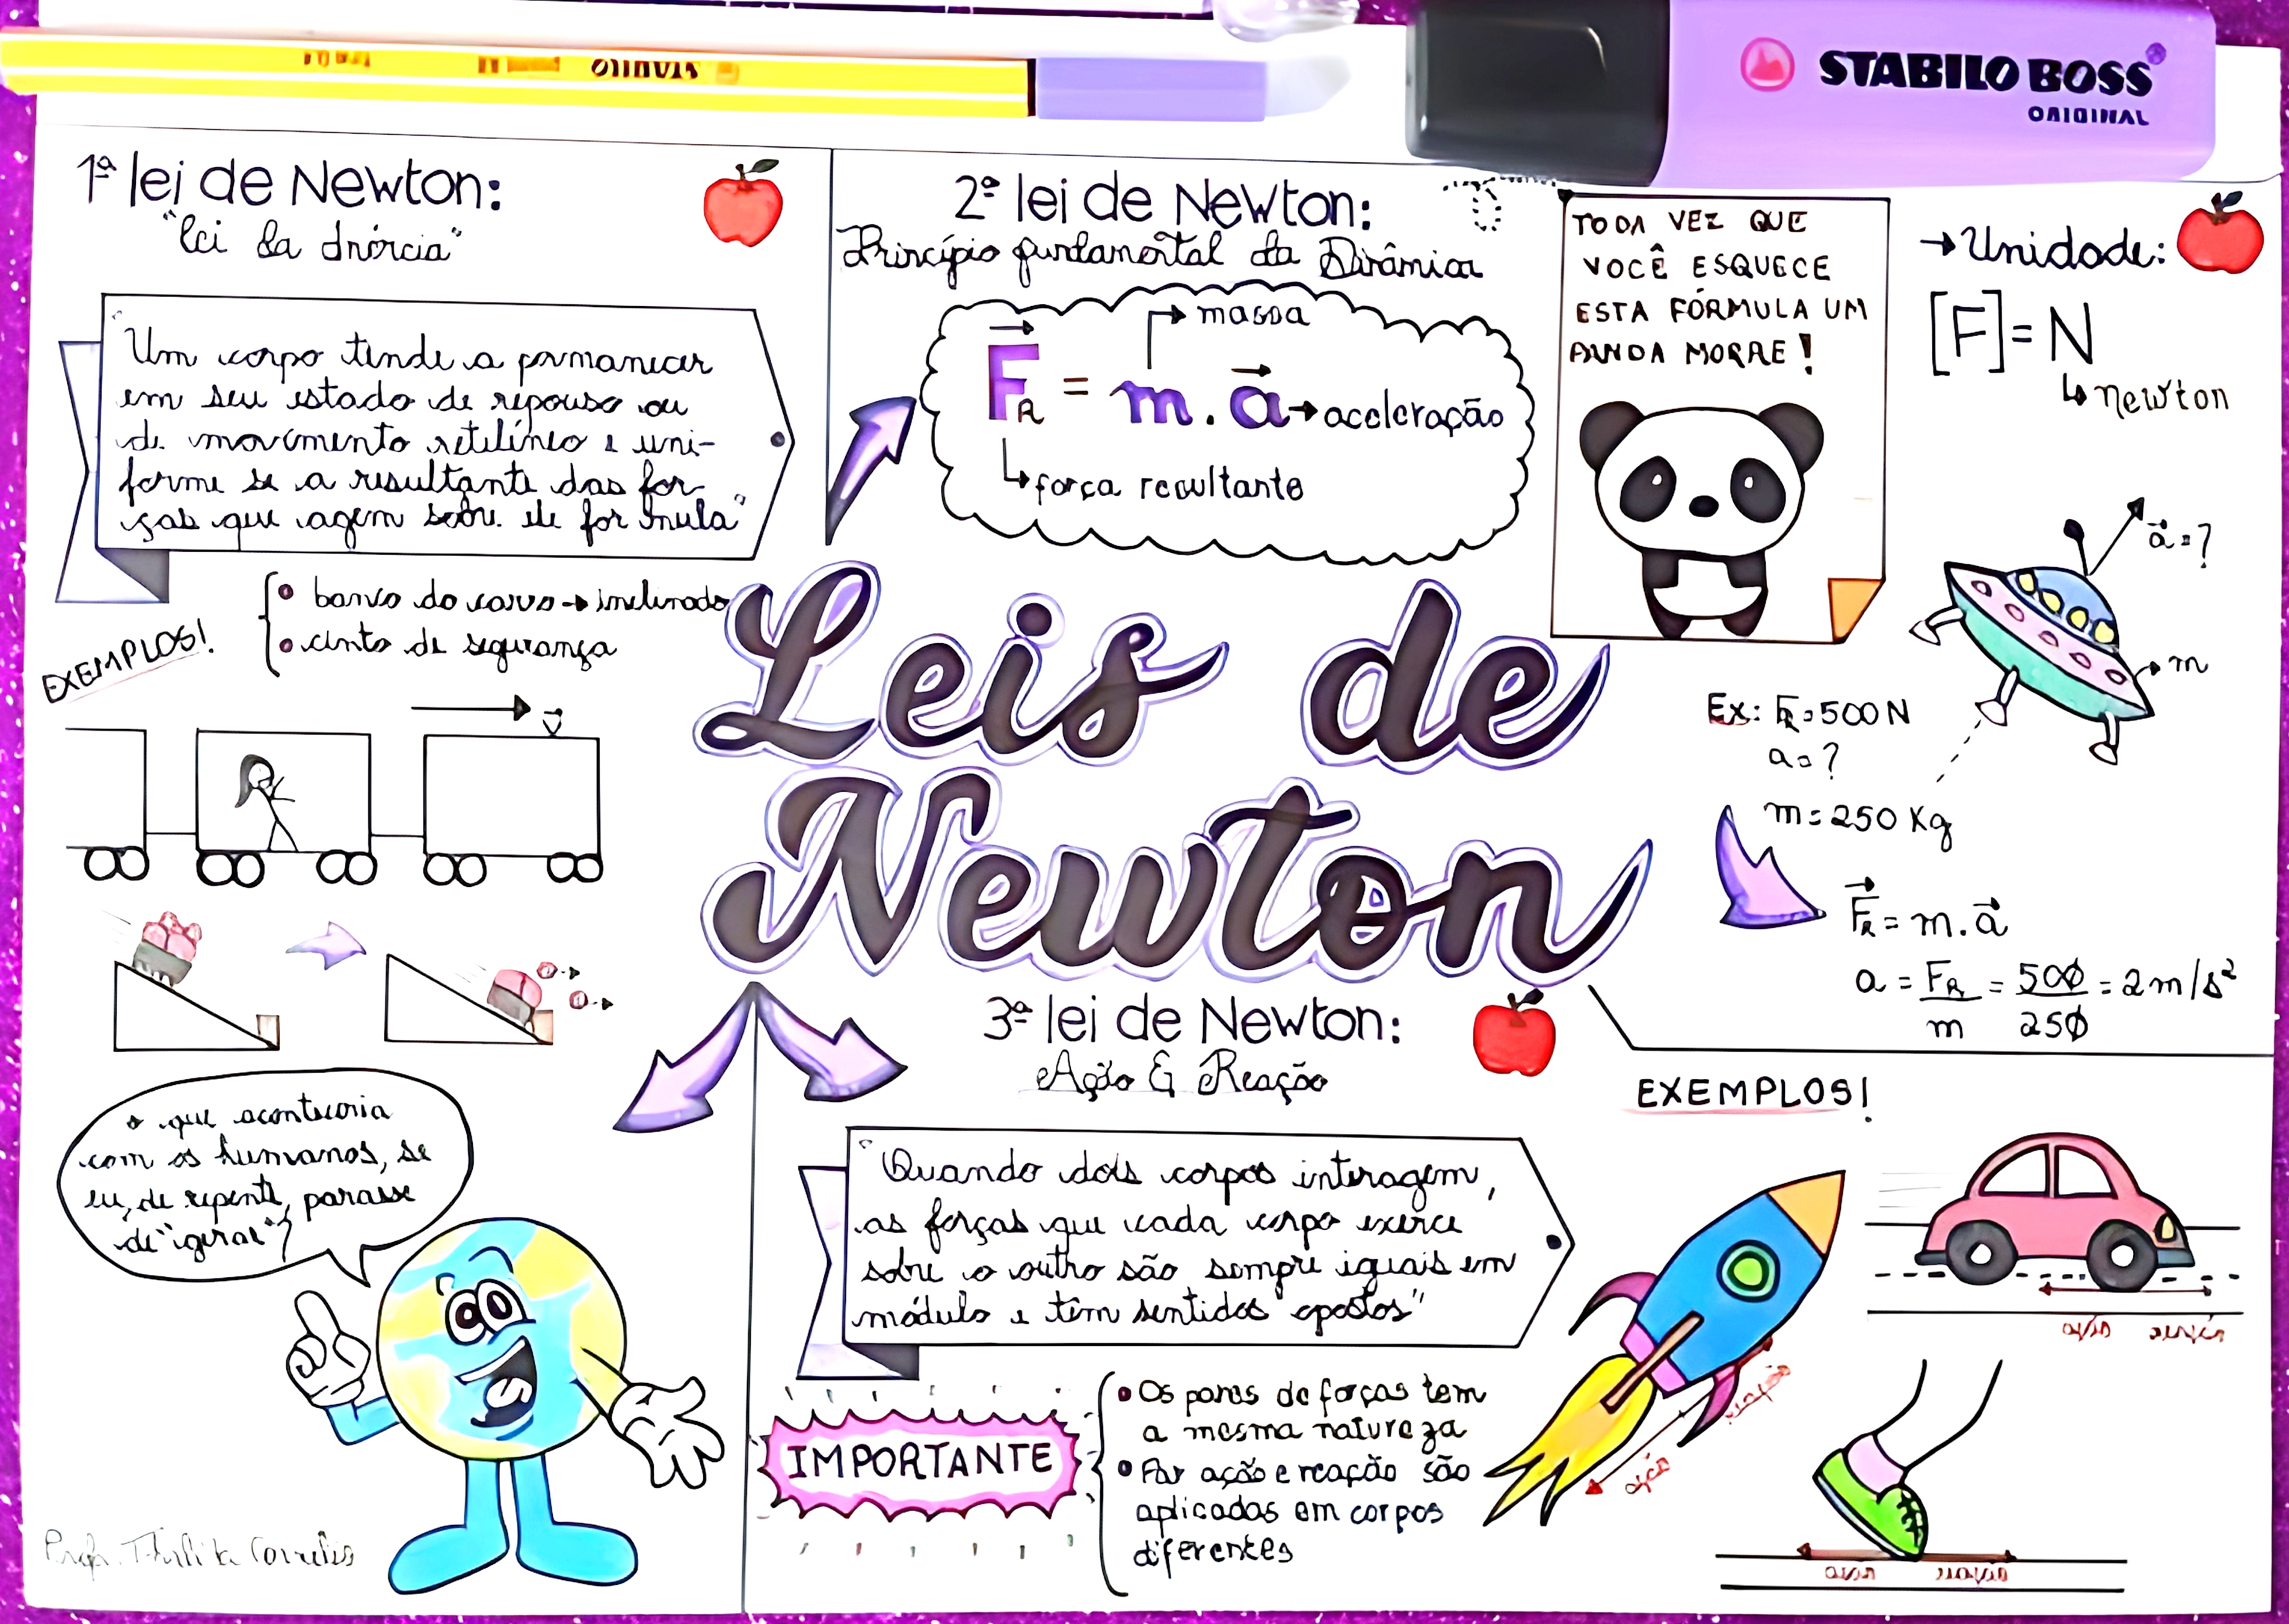 STABILO
STABILO BOSS
ORIGINAL
1ª lei de Newton:
"lei da Inércia"
"Um corpo tende a permanecer
em seu estado de repouso ou
de movimento retilíneo e uni-
forme se a resultante das for-
ças que agem sobre ele for nula"
EXEMPLOS!
• banco do carro → inclinado
• cinto de segurança
v
o que aconteceria
com os humanos, se
eu, de repente, parasse
de "gerar"?
2ª lei de Newton:
Princípio fundamental da Dinâmica
massa
FR = m . a → aceleração
↳ força resultante
TODA VEZ QUE
VOCÊ ESQUECE
ESTA FÓRMULA UM
PANDA MORRE!
→ Unidade:
[F] = N
↳ newton
a = ?
→ m
Ex: FR = 500 N
a = ?
m = 250 Kg
FR = m . a
a = FR/m = 500/250 = 2 m/s²
Leis de
Newton
3ª lei de Newton:
Ação & Reação
"Quando dois corpos interagem,
as forças que cada corpo exerce
sobre o outro são sempre iguais em
módulo e têm sentidos opostos"
IMPORTANTE
• Os pares de forças tem
a mesma natureza
• Par ação e reação são
aplicados em corpos
diferentes
EXEMPLOS!
reação
ação
ação reação